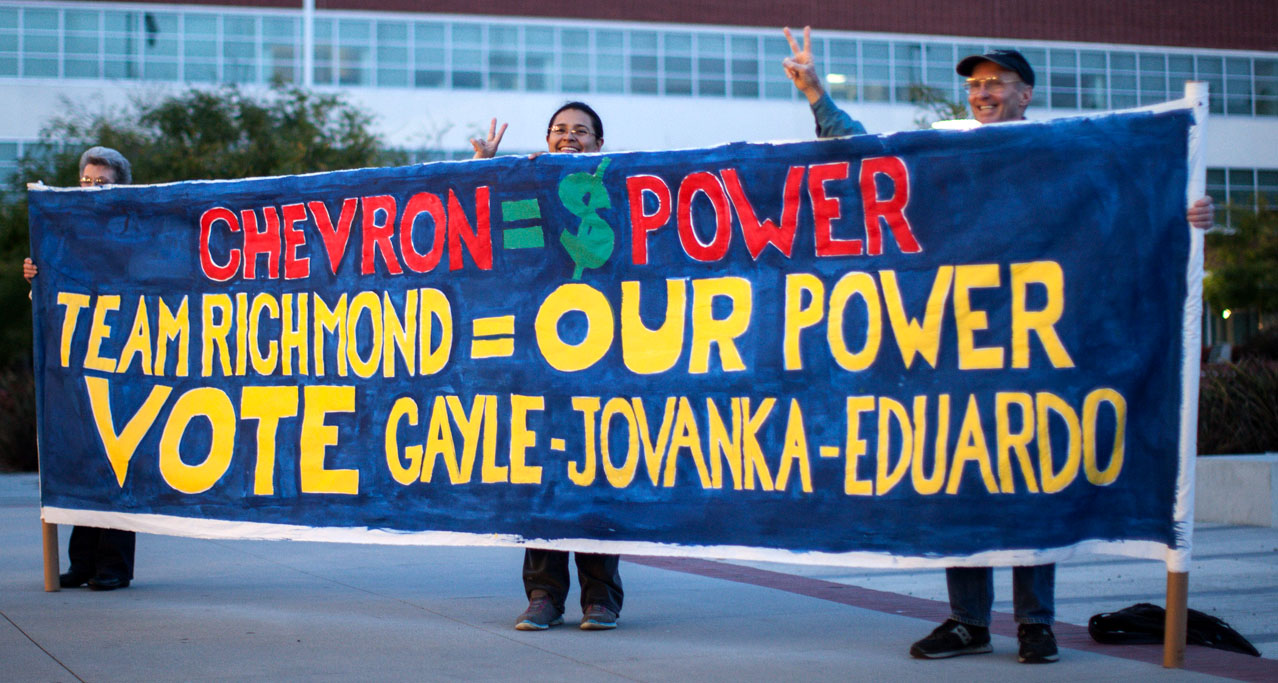 CHEVRON = $ POWER
TEAM RICHMOND = OUR POWER
VOTE GAYLE - JOVANKA - EDUARDO